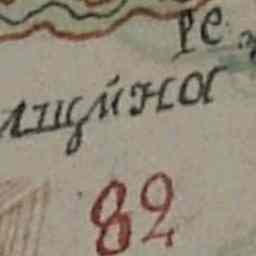 ре
лщина
82